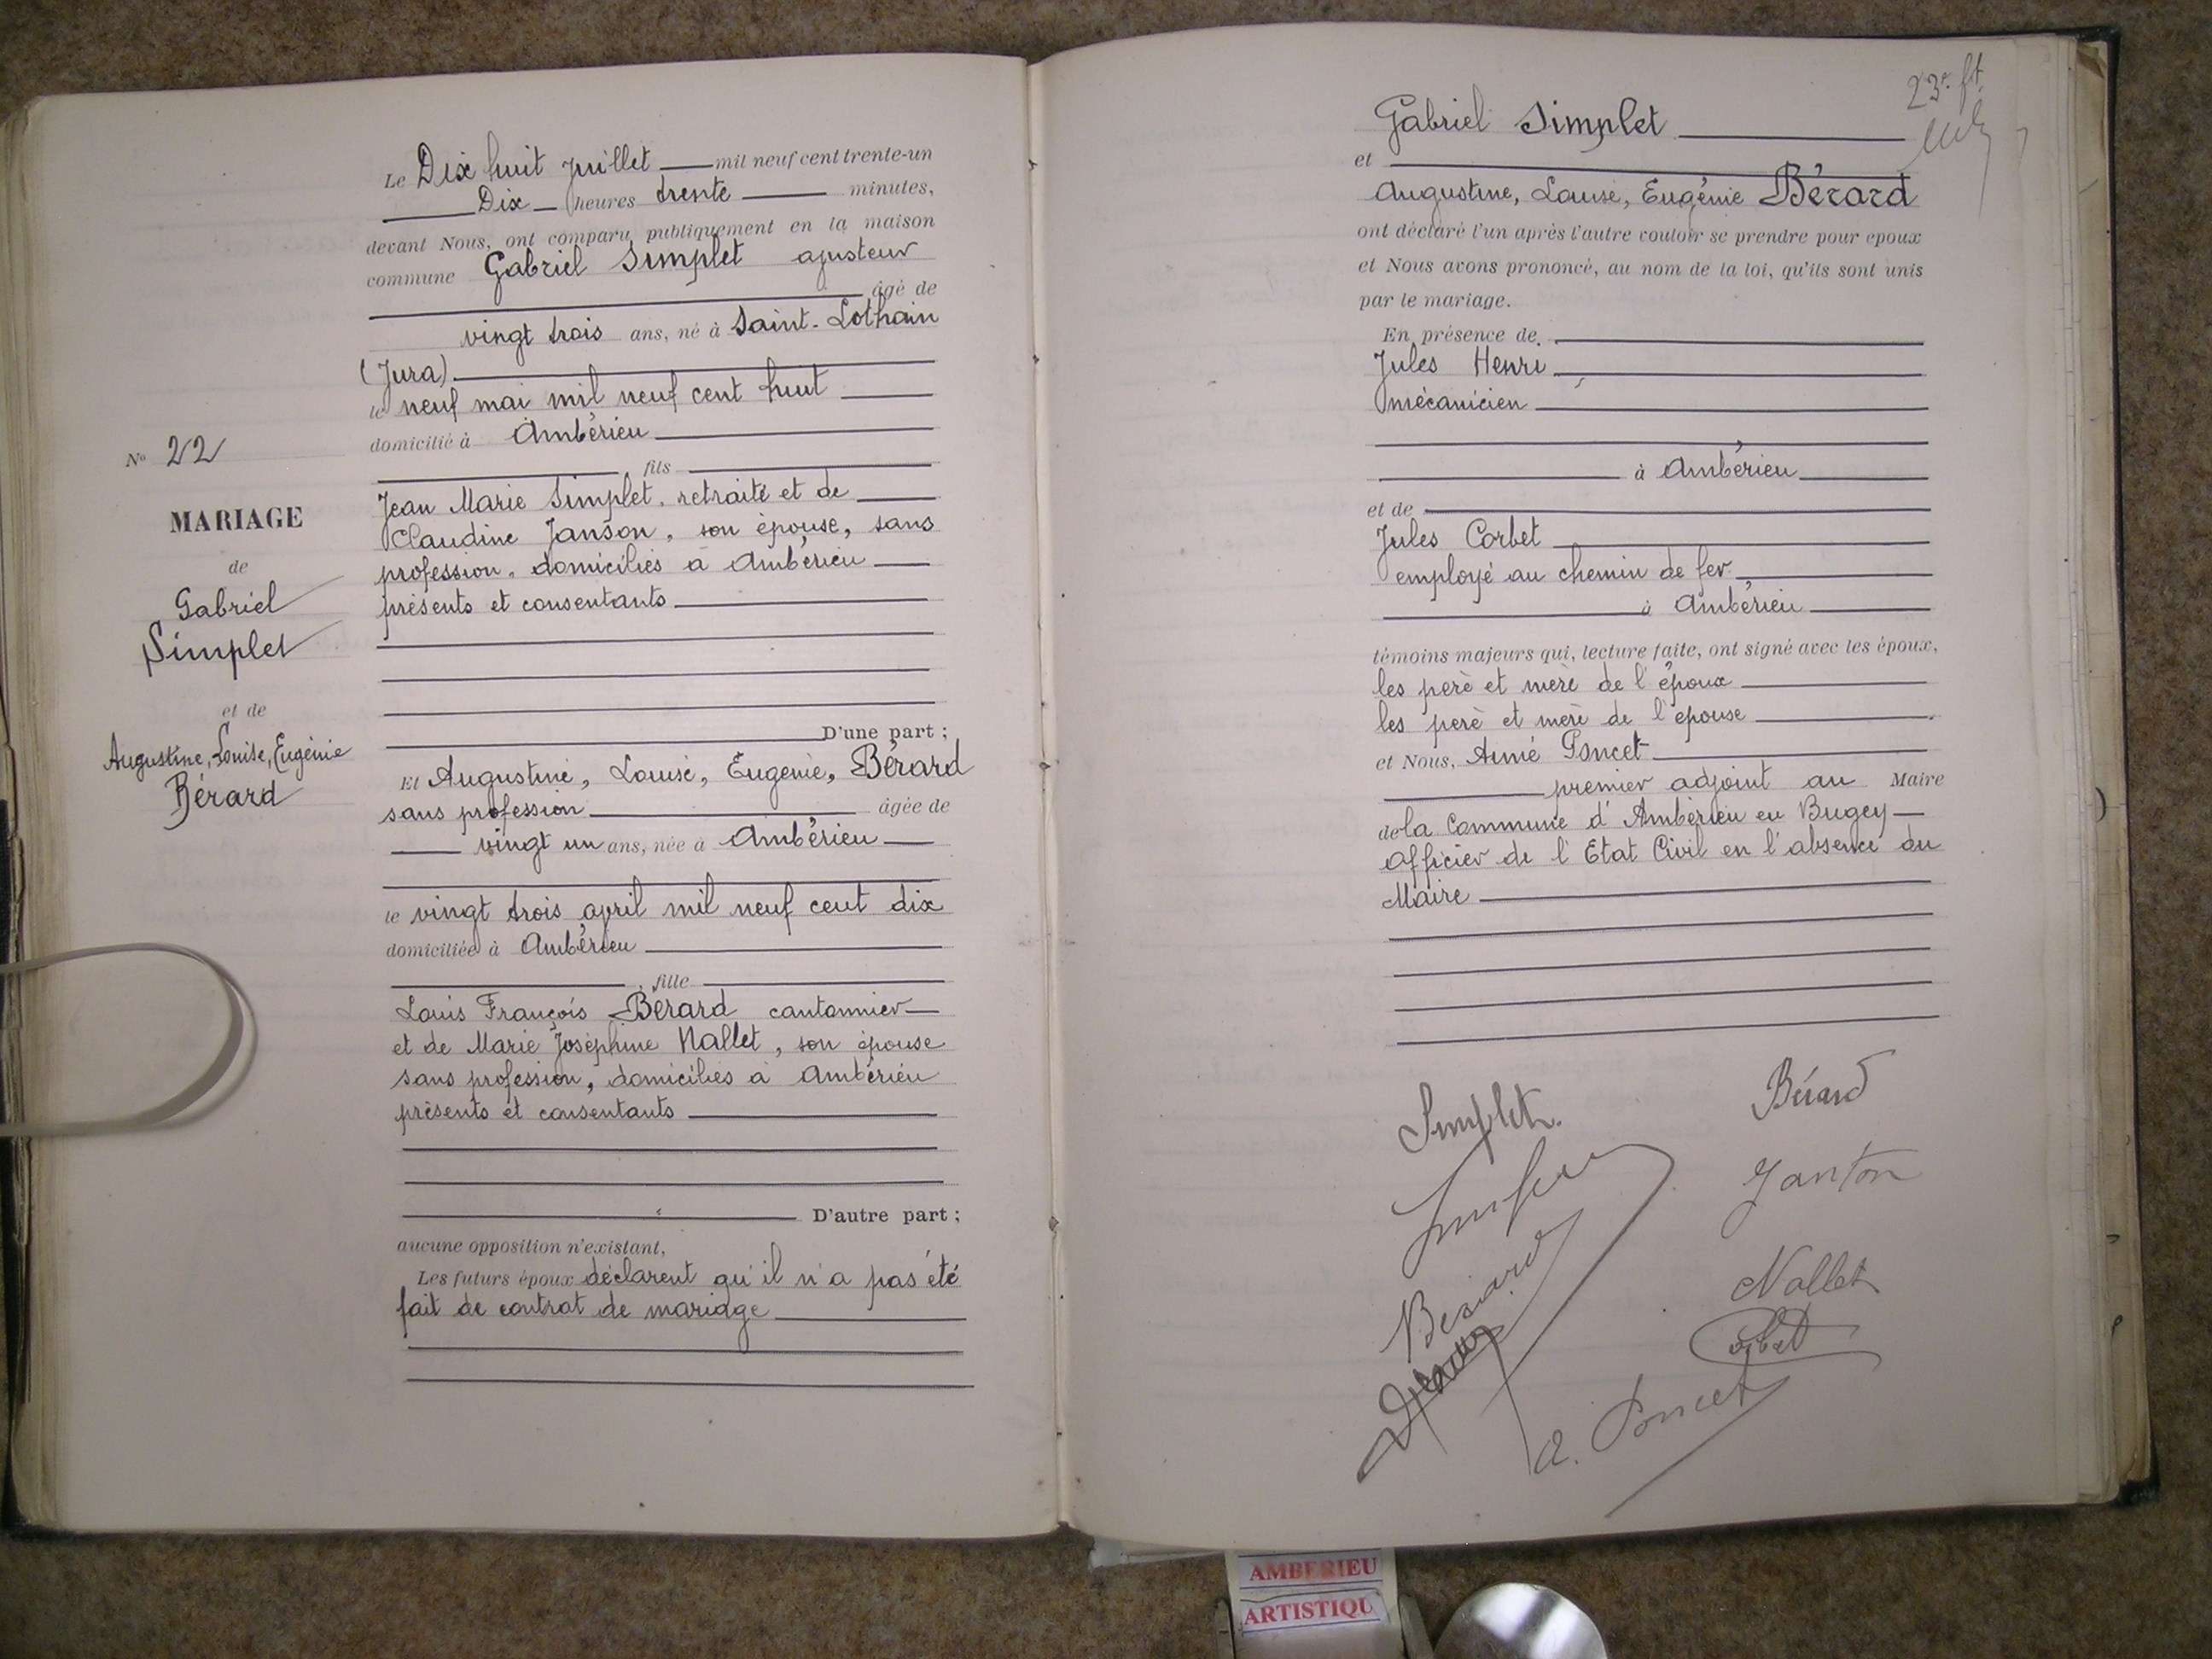 Le Dix huit Juillet mil neuf cent trente-un
Dix heures trente minutes,
devant Nous, ont comparu publiquement en la maison
commune Gabriel Simplet ajusteur
âgé de
vingt trois ans, né à Saint-Lothain
(Jura)
le neuf mai mil neuf cent huit
domicilié à Ambérieu
fils
Jean Marie Simplet, retraité et de
Claudine Janson, son épouse, sans
profession, domiciliés à Ambérieu
présents et consentants
D'une part ;
Nº 22
MARIAGE
de
Gabriel
Simplet
et de
Augustine, Louise, Eugénie
Bérard
Et Augustine, Louise, Eugénie, Bérard
sans profession âgée de
vingt un ans, née à Ambérieu
le vingt trois april mil neuf cent dix
domiciliée à Ambérieu
fille
Louis François Bérard cantonnier
et de Marie Joséphine Nallet, son épouse
sans profession, domiciliés à Ambérieu
présents et consentants
D'autre part ;
aucune opposition n'existant,
Les futurs époux déclarent qu'il n'a pas été
fait de contrat de mariage
23e ft
Gabriel Simplet
et
Augustine, Louise, Eugénie Bérard
ont déclaré l'un après l'autre vouloir se prendre pour époux
et Nous avons prononcé, au nom de la loi, qu'ils sont unis
par le mariage.
En présence de
Jules Henri
mécanicien
à Ambérieu
et de
Jules Corbet
employé au chemin de fer
à Ambérieu
témoins majeurs qui, lecture faite, ont signé avec les époux,
les père et mère de l'époux
les père et mère de l'épouse
et Nous, Aimé Poncet
premier adjoint au Maire
de la Commune d'Ambérieu en Bugey
officier de l'Etat Civil en l'absence du
Maire
Simplet.
Bérard
Janton
Berard
Nallet
Corbet
A. Poncet
AMBERIEU
ARTISTIQU